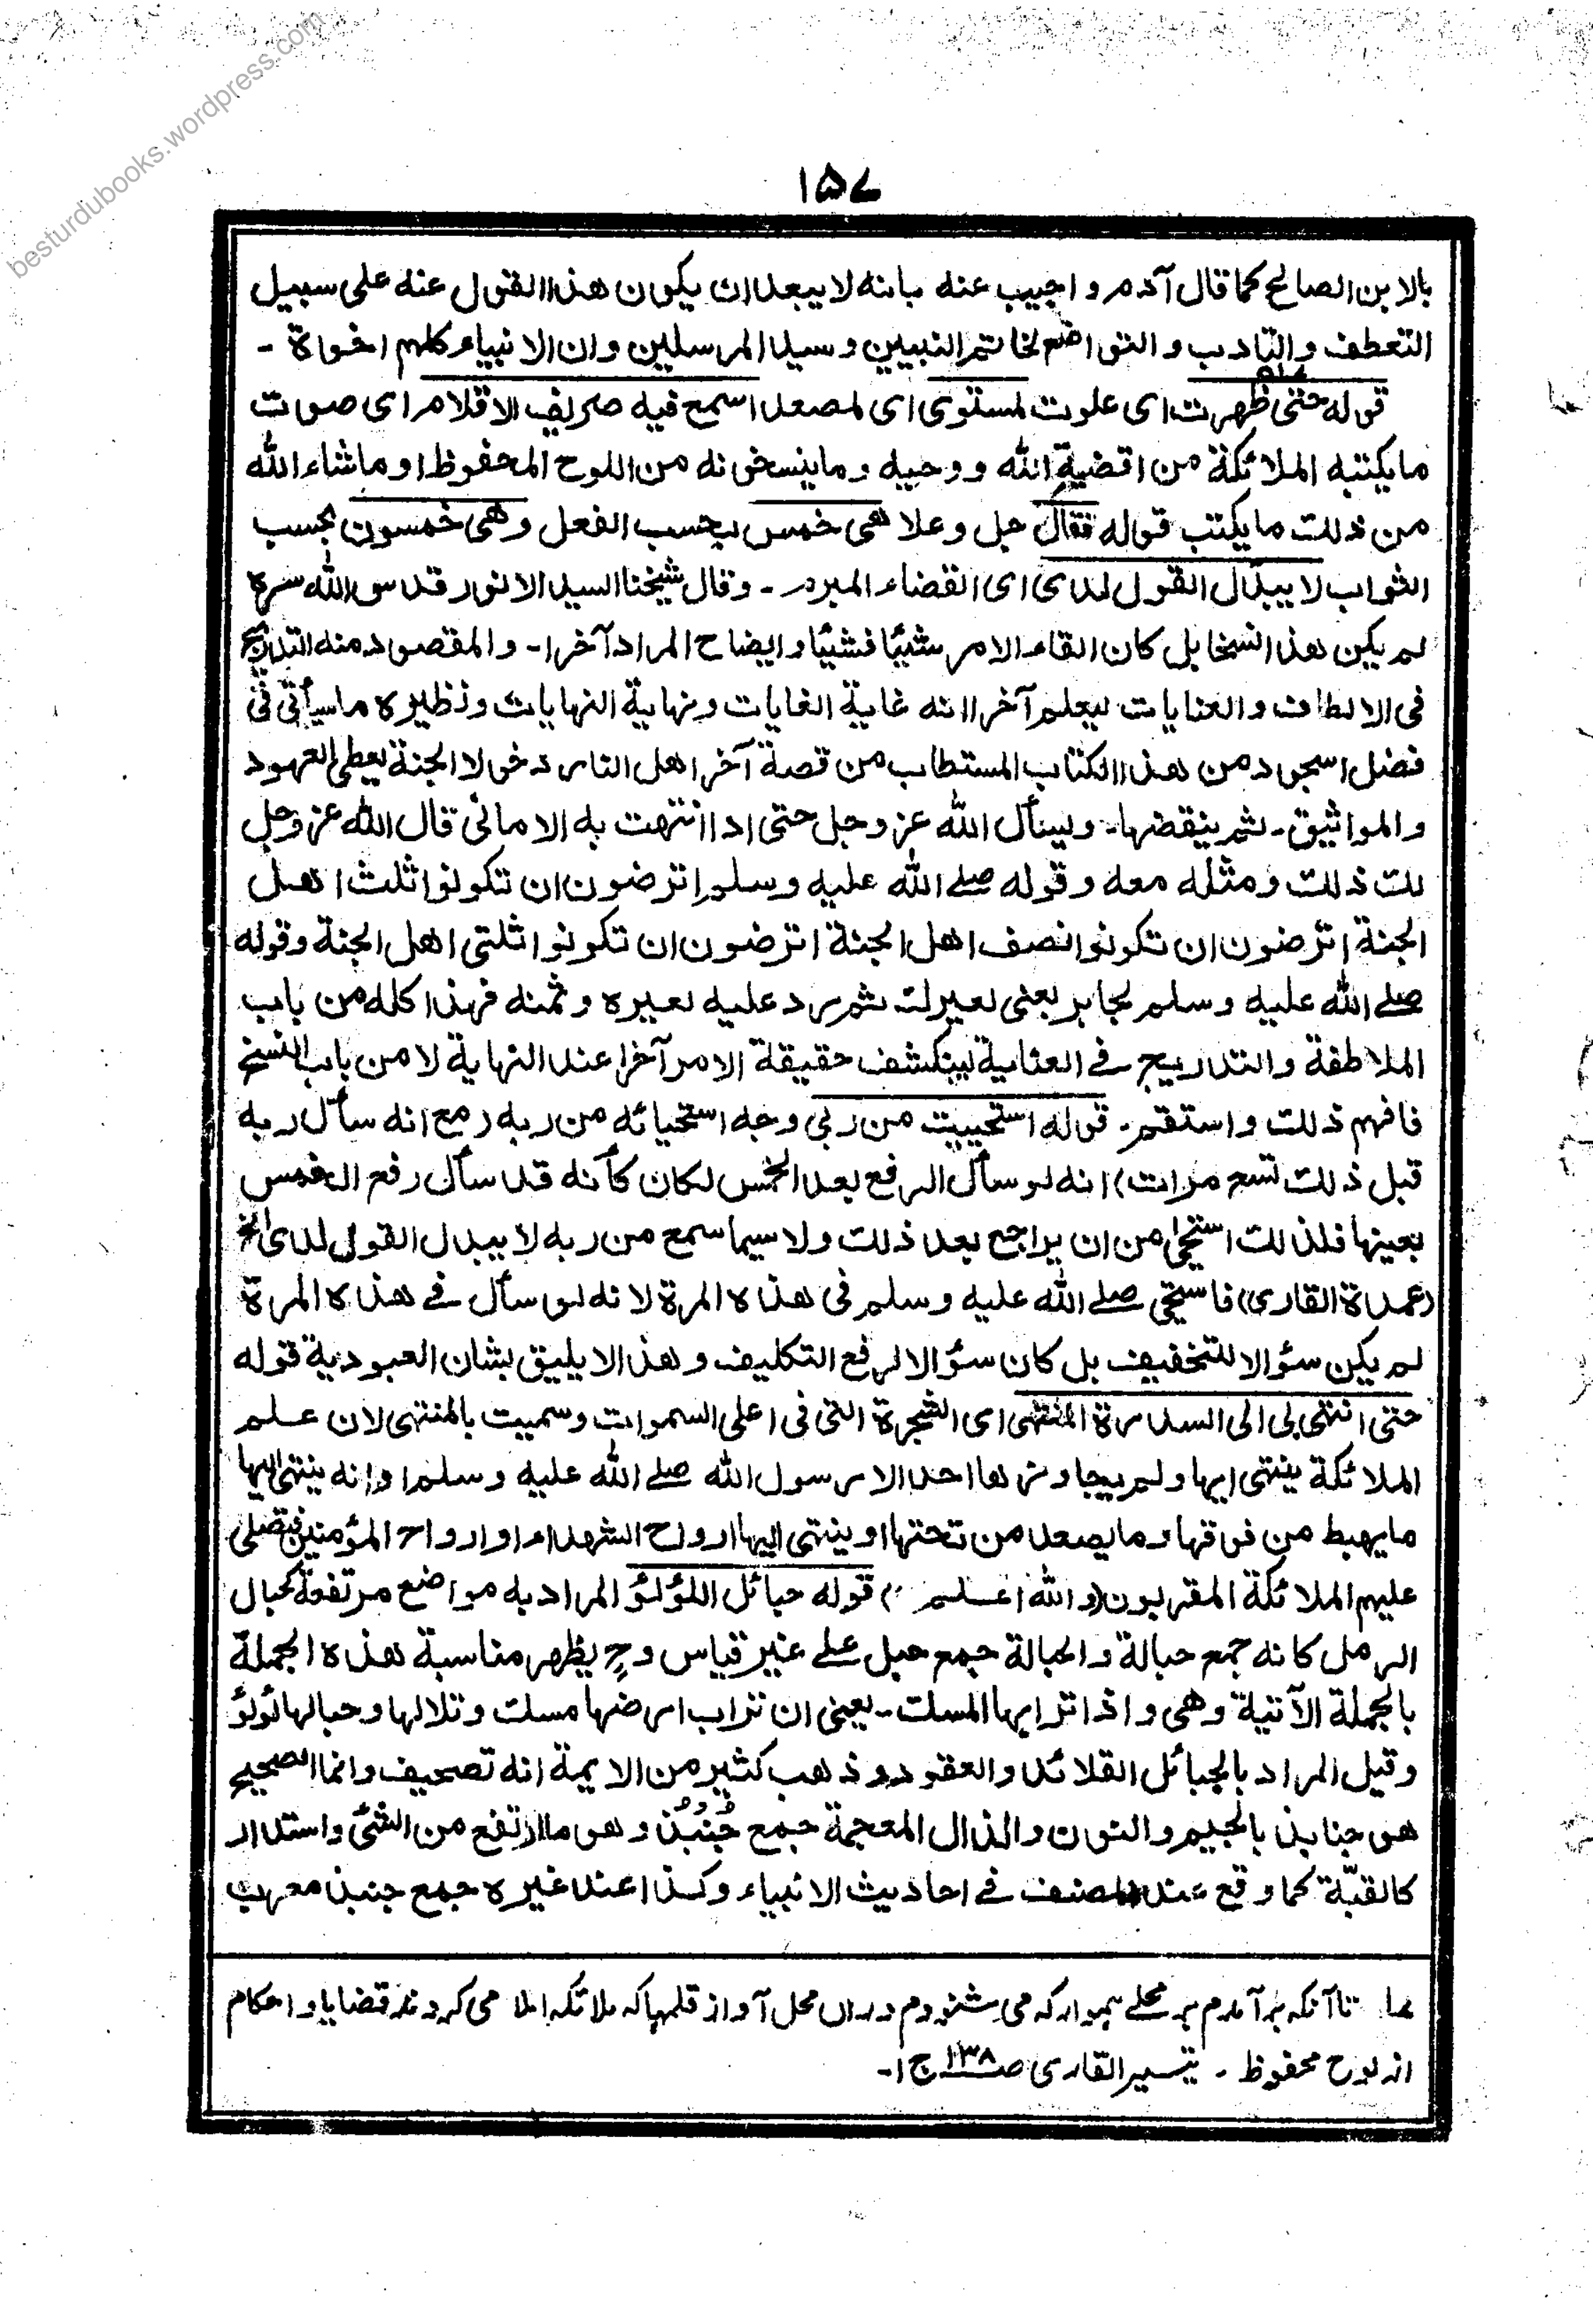 besturdubooks.wordpress.com
۱۵۷
بالابن الصالح كما قال آدم و اجيب عنه بانه لا يبعد ان يكون هذا القول عنه على سبيل
التعطف والتادب و التواضع لخاتم النبيين و سيد المرسلين وان الانبياء كلهم اخوة -
قوله حتى ظهرت اى علوت لمستوى اى لمصعد اسمع فيه صريف الاقلام اى صوت
ما يكتبه الملائكة من اقضية الله ووحيه وما ينسخونه من اللوح المحفوظ او ما شاء الله
من ذلك ما يكتب قوله فقال جل وعلا هى خمس بحسب الفعل وهى خمسون بحسب
الثواب لا يبدل القول لدى اى القضاء المبرم - وقال شيخنا السيد الانور قدس الله سره
لم يكن هذا نسخا بل كان القاء الامر شيئا فشيئا وايضاح المراد آخرا - والمقصود منه التدريج
فى الالطاف والعنايات ليعلم آخرا انه غاية الغايات ونهاية النهايات ونظيره ما سيأتى فى
فضل اسجود من هذا الكتاب المستطاب من قصة آخر اهل النار دخولا الجنة يعطى العهود
والمواثيق - ثم ينقضها - ويسأل الله عز وجل حتى اذا انتهت به الامانى قال الله عز وجل
لك ذلك ومثله معه وقوله صلے الله عليه وسلم اترضون ان تكونوا ثلث اهل
الجنة اترضون ان تكونوا نصف اهل الجنة اترضون ان تكونوا ثلثى اهل الجنة وقوله
صلے الله عليه وسلم لجابر بعنى بعيرك ثم رد عليه بعيره وثمنه فهذا كله من باب
الملاطفة والتدريج فے العناية لينكشف حقيقة الامر آخرا عند النهاية لا من باب النسخ
فافهم ذلك واستقم - قوله استحييت من ربى وجه استحيائه من ربه (مع انه سأل ربه
قبل ذلك تسع مرات) انه لو سأل الرفع بعد الخمس لكان كأنه قد سأل رفع الخمس
بعينها فلذلك استحى من ان يراجع بعد ذلك ولا سيما سمع من ربه لا يبدل القول لدى الخ
(عمدة القارى) فاستحى صلے الله عليه وسلم فى هذه المرة لانه لو سأل فے هذه المرة
لم يكن سؤالا للتخفيف بل كان سؤالا لرفع التكليف وهذا لا يليق بشان العبودية قوله
حتى انتهى بى الى السدرة المنتهى اى الشجرة التى فى اعلى السموات وسميت بالمنتهى لان علم
الملائكة ينتهى اليها ولم يجاوزها احد الا رسول الله صلے الله عليه وسلم او انه ينتهى اليها
ما يهبط من فوقها وما يصعد من تحتها او ينتهى اليها ارواح الشهداء او ارواح المؤمنين فيصلى
عليهم الملائكة المقربون (والله اعلم) قوله حبائل اللؤلؤ المراد به مواضع مرتفعة كحبال
الرمل كانه جمع حبالة والحبالة جمع حبل علے غير قياس وح يظهر مناسبة هذه الجملة
بالجملة الآتية وهى واذا ترابها المسك - يعنى ان تراب ارضها مسك وتلالها وحبالها لؤلؤ
وقيل المراد بالحبائل القلائد والعقود وذهب كثير من الايمة انه تصحيف وانما الصحيح
هو جنابذ بالجيم والنون والذال المعجمة جمع جُنبُذ وهو ما ارتفع من الشئ واستدار
كالقبّة كما وقع عند المصنف فے احاديث الانبياء وكذا عند غيره جمع جنبذ معرب
عا۔ تا آنکه بر آمدم بر محلے ہموار که می شنودم دران محل آواز قلمہا که ملائکه املا می کردند قضایا و احکام
از لوح محفوظ - تیسیر القاری ص۱۳۸ ج۱-